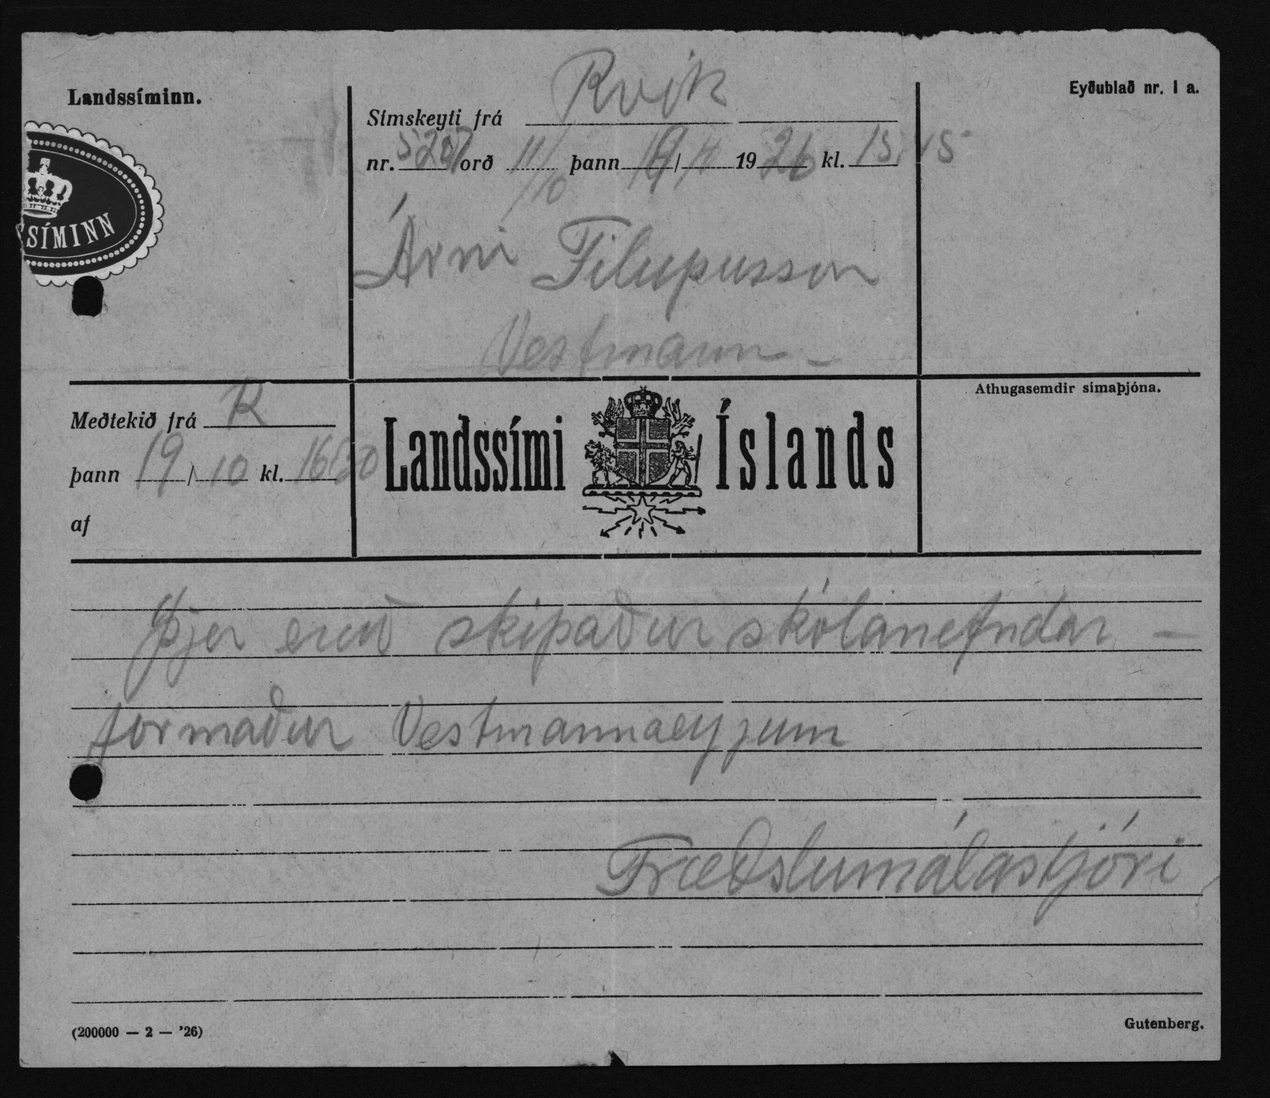 Landssíminn.
Eyðublað nr. 1 a.
Símskeyti frá Rvík
nr. 5207 orð 11/10 þann 19/ 1926 kl. 15,45
SÍMINN
Árni Filupusson
Vestmann –
Meðtekið frá R
þann 19/10 kl. 1630
af
Landssími Íslands
Athugasemdir símaþjóna.
Þjer eruð skipaður skólanefndar –
formaður Vestmannaeyjum
Fræðslumálastjóri
(200000 — 2 — '26)
Gutenberg.